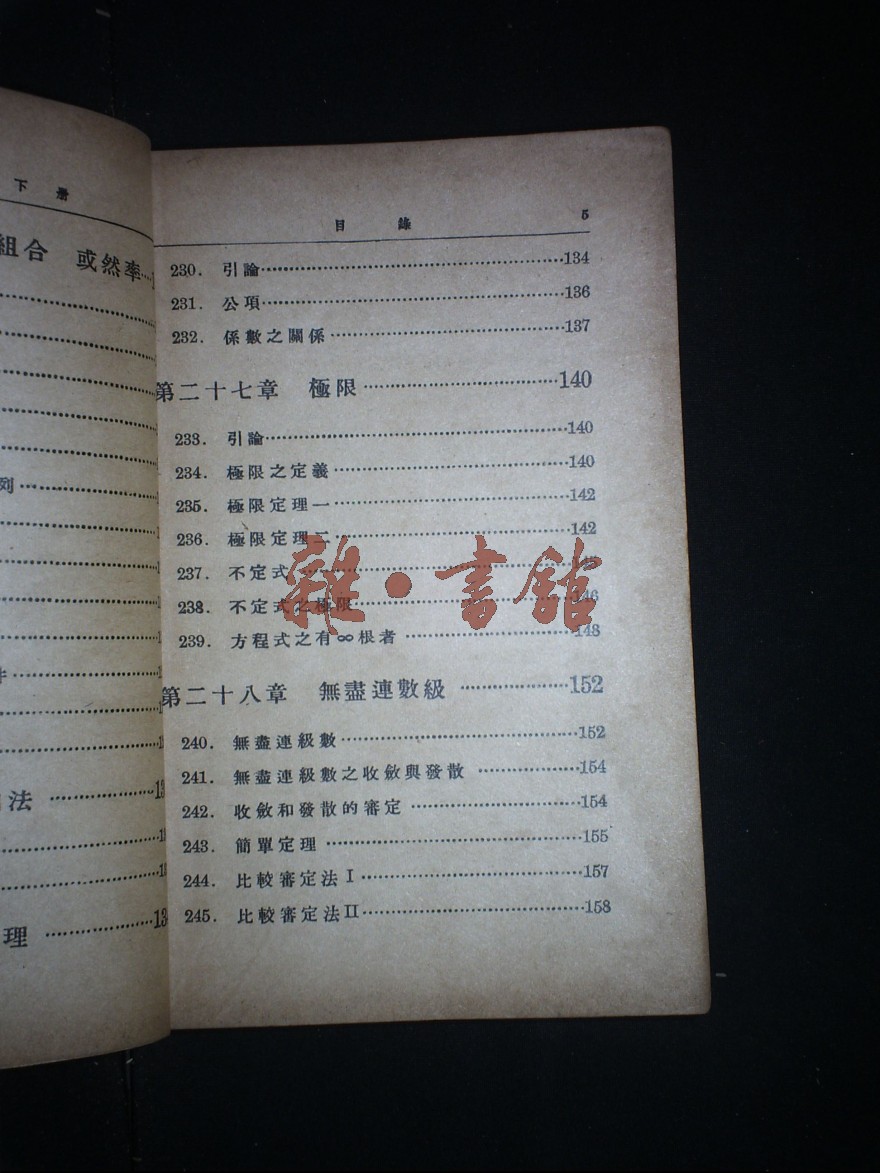 下 册
組合 或然率
列
件
法
理
目 錄 5
230. 引論 134
231. 公項 136
232. 係數之關係 137
第二十七章 極限 140
233. 引論 140
234. 極限之定義 140
235. 極限定理一 142
236. 極限定理二 142
237. 不定式
238. 不定式之極限 146
239. 方程式之有∞根者 148
第二十八章 無盡連數級 152
240. 無盡連級數 152
241. 無盡連級數之收斂與發散 154
242. 收斂和發散的審定 154
243. 簡單定理 155
244. 比較審定法 I 157
245. 比較審定法 II 158
雜·書館